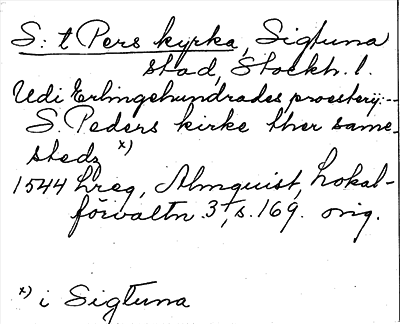 S:t Pers kyrka, Sigtuna
stad, Stockh. l.
Udi Erlingehundrades proesterij: --
S. Peders kirke ther same-
steds x)
1544 hreg, Almquist, Lokal-
förvaltn. 3†, s. 169. orig.
x) i Sigtuna